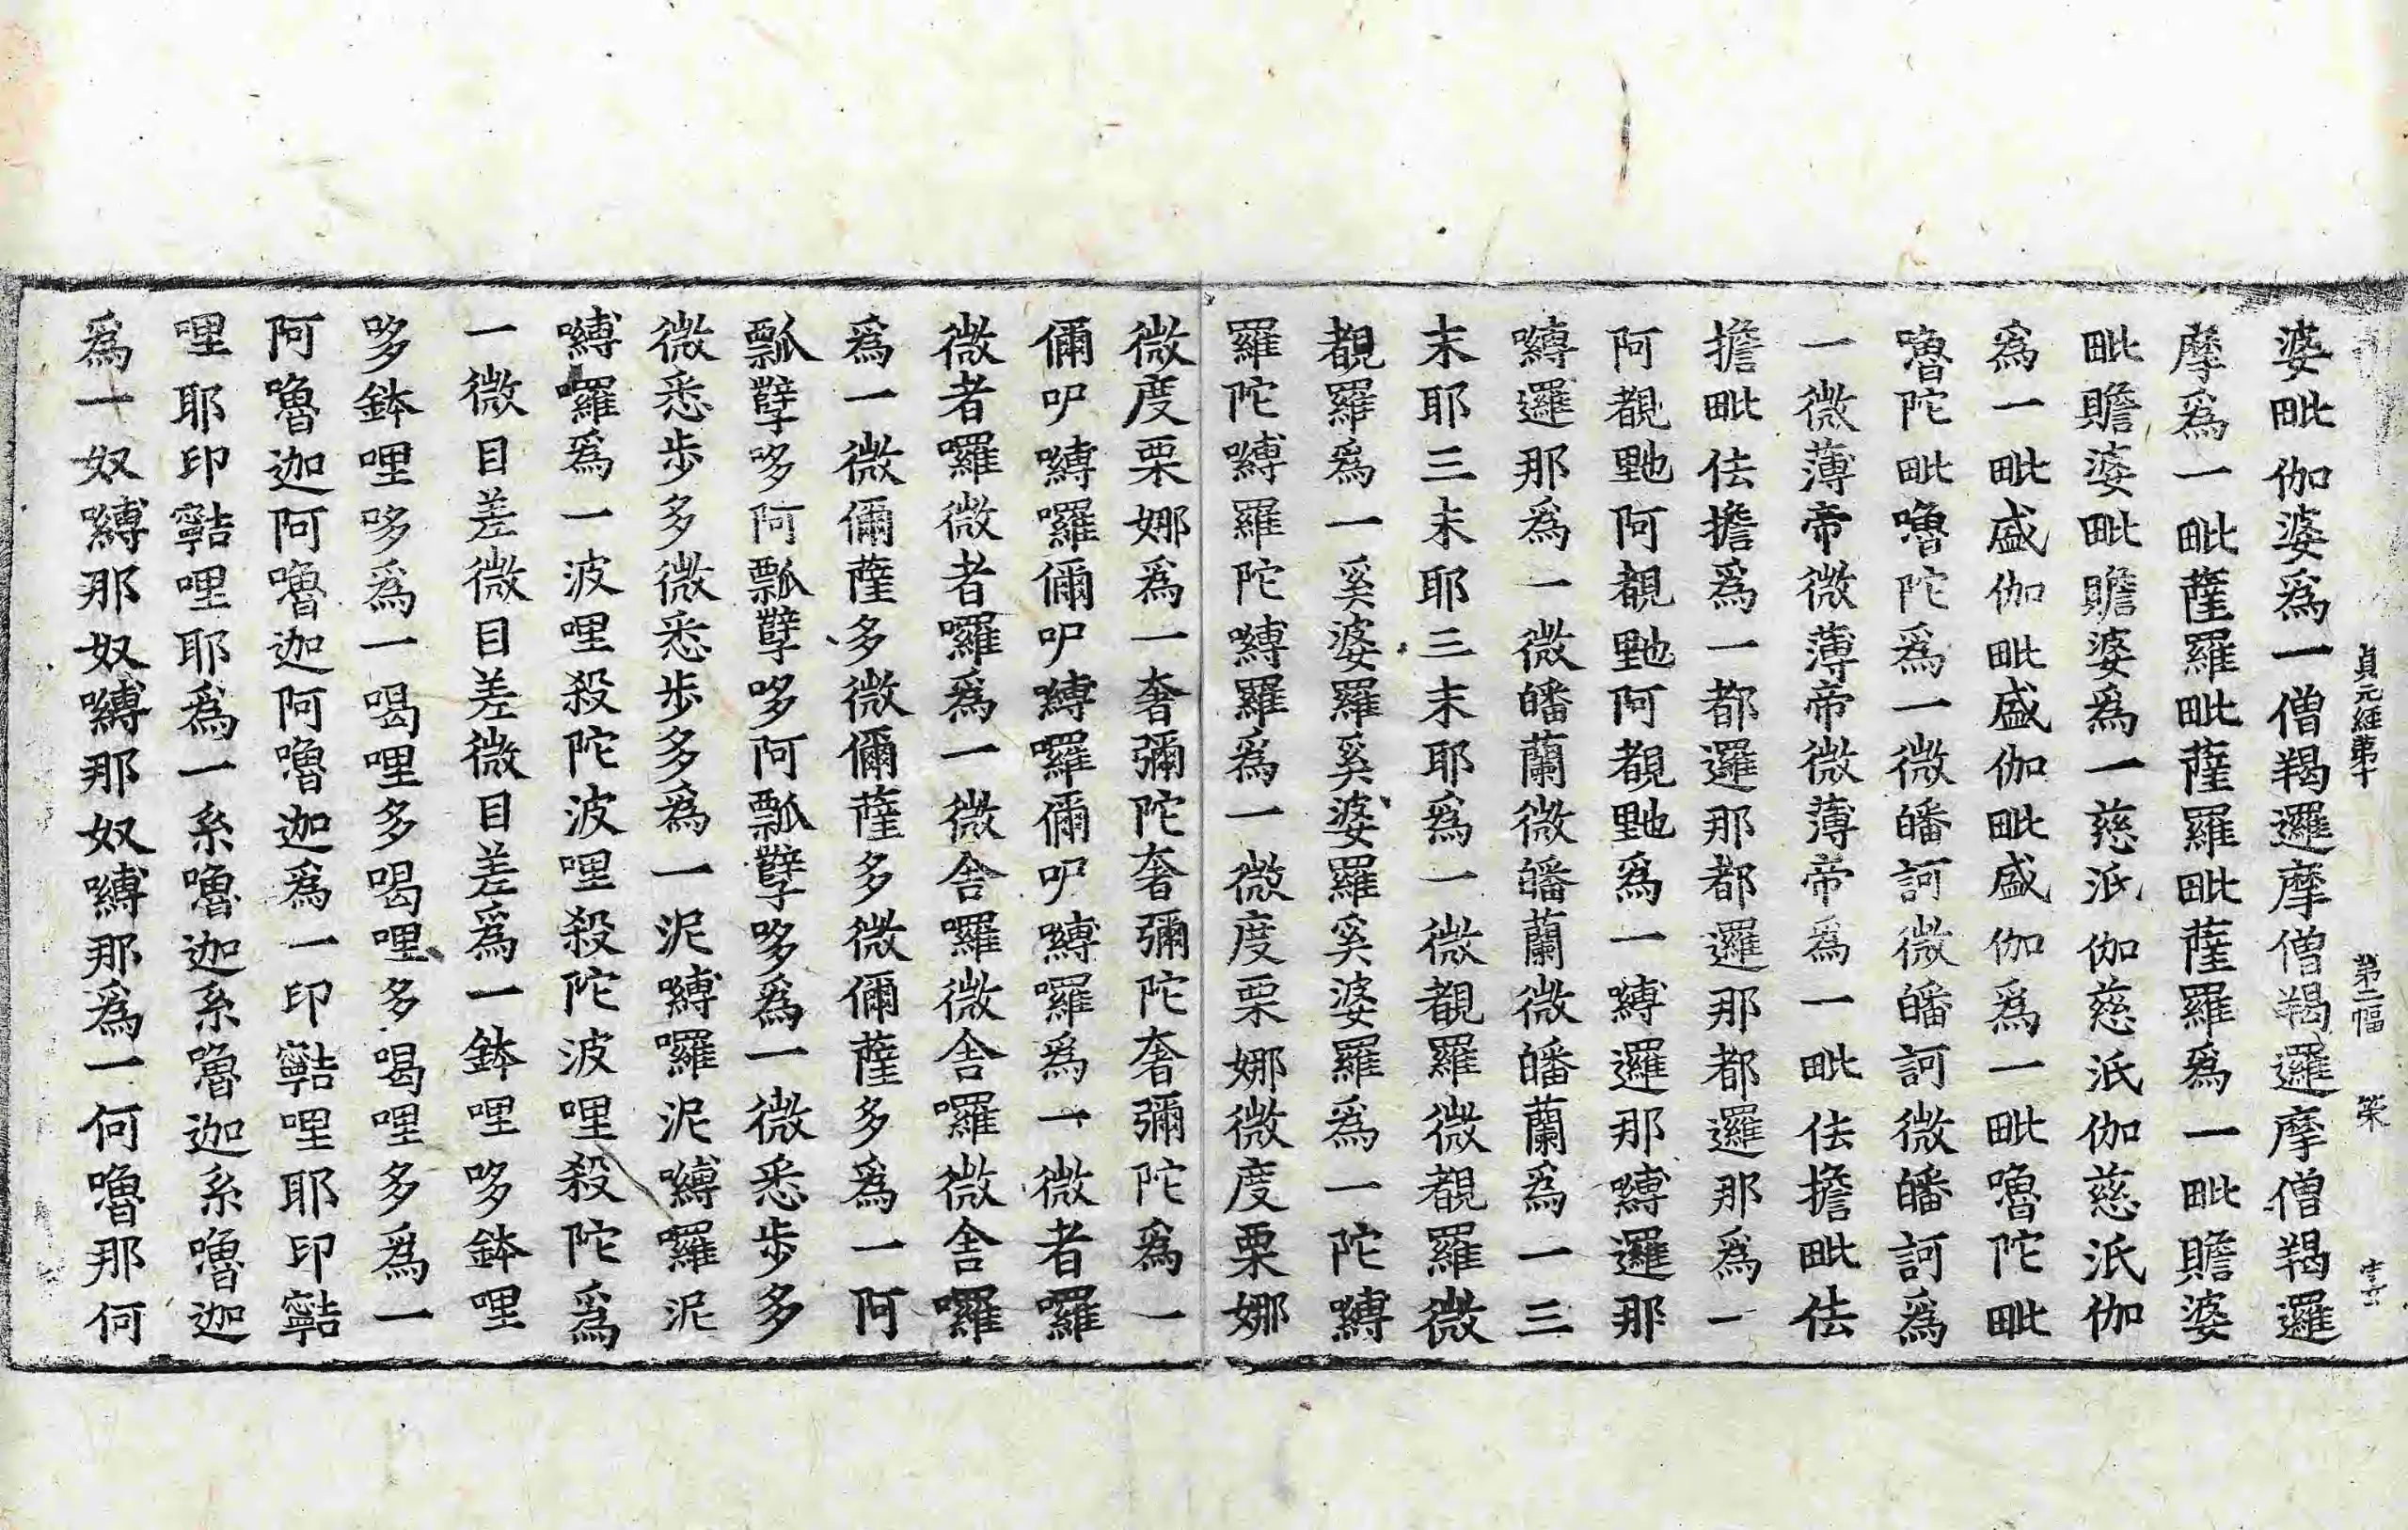 貞元經第十 第二幅 策
婆毗伽婆爲一僧羯邏摩僧羯邏摩僧羯邏
摩爲一毗薩羅毗薩羅毗薩羅爲一毗贍婆
毗贍婆毗贍婆爲一慈泒伽慈泒伽慈泒伽
爲一毗盛伽毗盛伽毗盛伽爲一毗嚕陀毗
嚕陀毗嚕陀爲一微皤訶微皤訶微皤訶爲
一微薄帝微薄帝微薄帝爲一毗佉擔毗佉
擔毗佉擔爲一都邏那都邏那都邏那爲一
阿覩阿覩阿覩爲一嚩邏那嚩邏那
嚩邏那爲一微皤蘭微皤蘭微皤蘭爲一三
末耶三末耶三末耶爲一微覩羅微覩羅微
覩羅爲一奚婆羅奚婆羅奚婆羅爲一陀嚩
羅陀嚩羅陀嚩羅爲一微度栗娜微度栗娜
微度栗娜爲一奢彌陀奢彌陀奢彌陀爲一
儞嚩囉儞嚩囉儞嚩囉爲一微者囉
微者囉微者囉爲一微舎囉微舎囉微舎囉
爲一微儞薩多微儞薩多微儞薩多爲一阿
瓢孽哆阿瓢孽哆阿瓢孽哆爲一微悉歩多
微悉歩多微悉歩多爲一泥嚩囉泥嚩囉泥
嚩囉爲一波哩殺陀波哩殺陀波哩殺陀爲
一微目差微目差微目差爲一鉢哩哆鉢哩
哆鉢哩哆爲一喝哩多喝哩多喝哩多爲一
阿嚕迦阿嚕迦阿嚕迦爲一印哩耶印
哩耶印哩耶爲一系嚕迦系嚕迦系嚕迦
爲一奴嚩那奴嚩那奴嚩那爲一何嚕那何